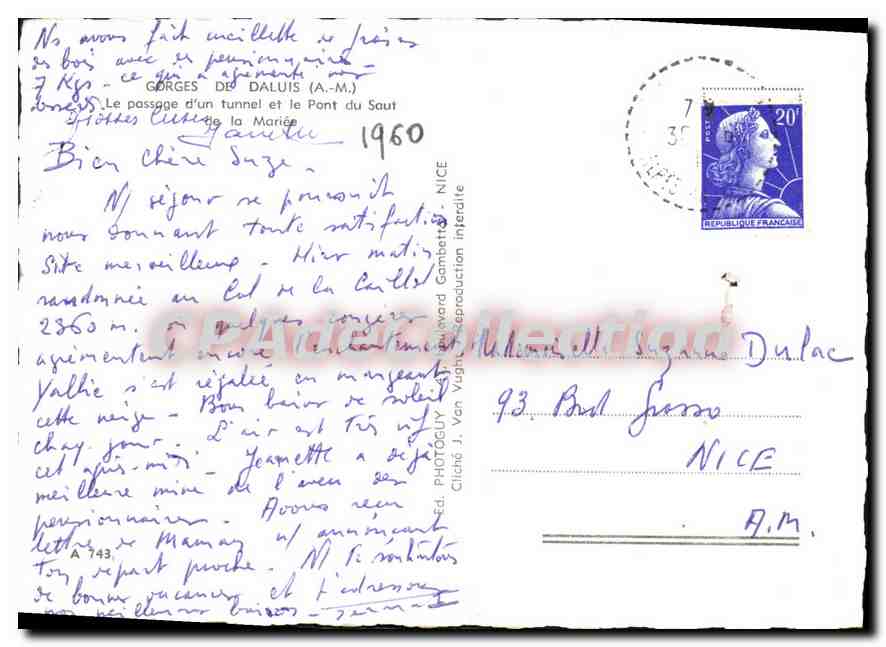 Ns avons fait cueillette de fraises
des bois avec des pensionnaires -
7 Kgs - ce qui a agrémenté nos
desserts.
GORGES DE DALUIS (A.-M.)
Le passage d'un tunnel et le Pont du Saut
de la Mariée
Grosses bises
1960
Bien chère Suze.
N/ séjour se poursuit
nous donnant toute satisfaction
Site merveilleux - Hier matin
randonnée au Col de la Caillol
2360 m. où quelques congères
agrémentent encore l'enchantement
s'est régalée en mangeant
cette neige - Bons bains de soleil
chaq. jour. L'air est très vif
cet après-midi - Jeannette a déjà
meilleure mine de l'aveu des
pensionnaires. Avons reçu
lettre de Maman n/ annonçant
A 743
ton départ proche. N/ te souhaitons
de bonnes vacances et t'adressons
nos meilleurs baisers -
Ed. PHOTOGUY Boulevard Gambetta - NICE
Cliché J. Van Vught Reproduction interdite
7
POSTES
20F
REPUBLIQUE FRANÇAISE
Mademoiselle Suzanne Dulac
93 Bvd Grosso
NICE
A.M.
CPA de Collection